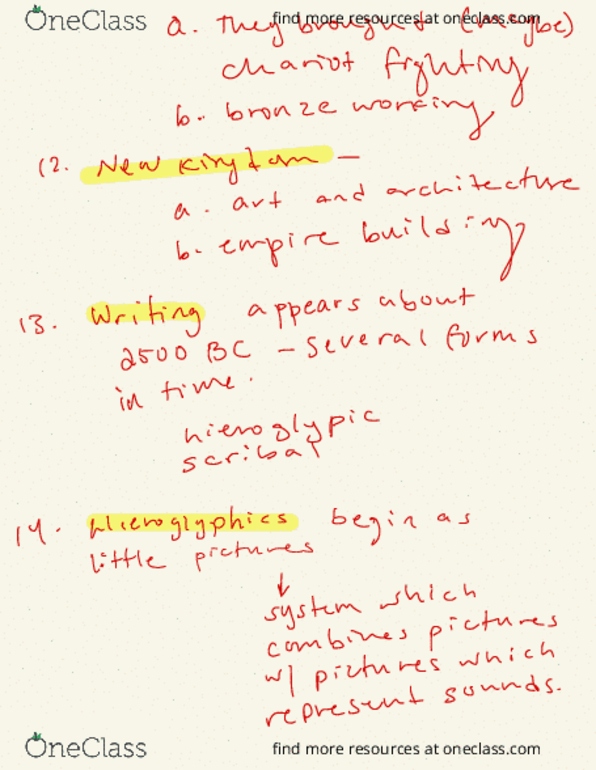 OneClass
find more resources at oneclass.com
a. they brought (maybe)
chariot fighting
b. bronze working
12. New Kingdom —
a. art and architecture
b. empire building
13. Writing appears about
2500 BC - Several forms
in time.
hieroglypic
scribal
14. Hieroglyphics begin as
little pictures
↓
system which
combines pictures
w/ pictures which
represent sounds.
OneClass
find more resources at oneclass.com